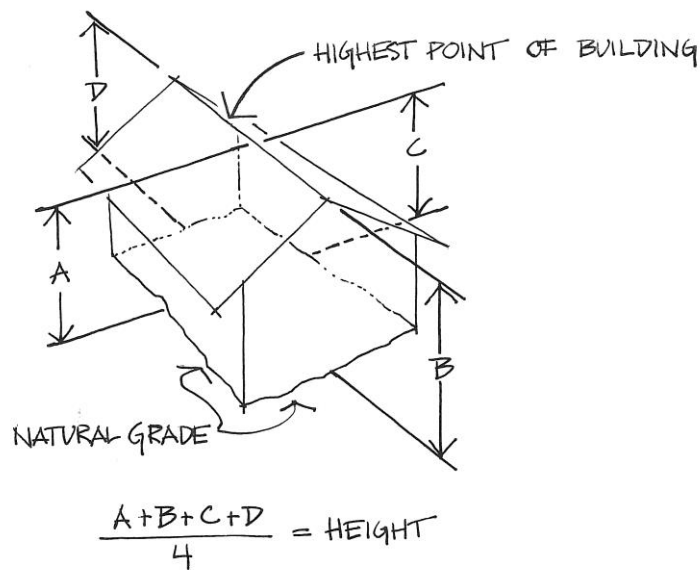 HIGHEST POINT OF BUILDING
D
C
A
B
NATURAL GRADE
A+B+C+D
4
= HEIGHT